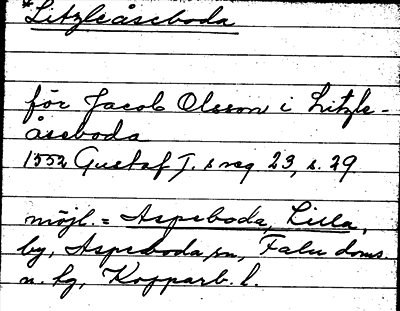 *Litzleåseboda
för Jacob Olsson i Litzle-
åseboda
1552 Gustaf I. s reg. 23, s. 29
möjl. = Aspeboda, Lilla,
by, Aspeboda sn, Falu doms.
n. tg, Kopparb. l.